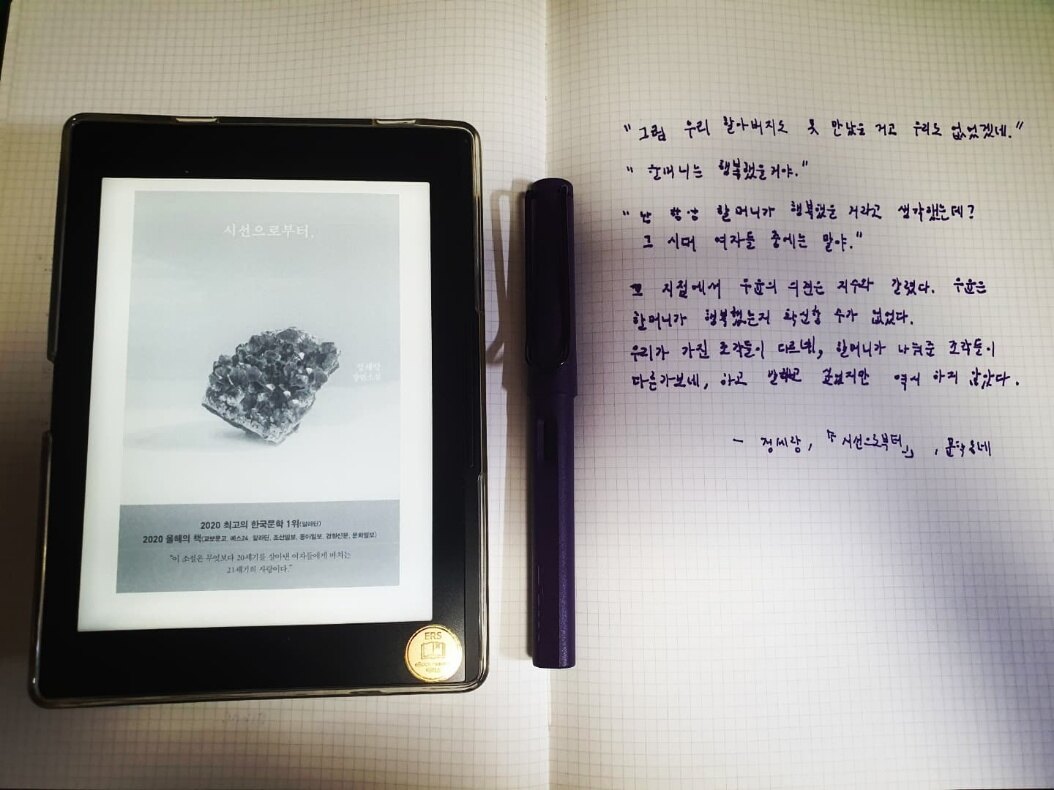 시선으로부터,
정세랑
장편소설
2020 최고의 한국문학 1위(알라딘)
2020 올해의 책(교보문고, 예스24, 알라딘, 조선일보, 동아일보, 경향신문, 문화일보)
"이 소설은 무엇보다 20세기를 살아낸 여자들에게 바치는
21세기의 사랑이다."
ERS
"그럼 우리 할아버지도 못 만났을 거고 우리도 없었겠네."
"할머니는 행복했을거야."
"난 항상 할머니가 행복했을 거라고 생각했는데?
그 시대 여자들 중에는 말야."
그 지점에서 우윤의 의견은 지수와 갈렸다. 우윤은
할머니가 행복했는지 확신할 수가 없었다.
우리가 가진 조각들이 다르네, 할머니가 나눠준 조각들이
다른가보네, 하고 말하고 싶었지만 역시 하지 않았다.
- 정세랑, 『시선으로부터,』, 문학동네